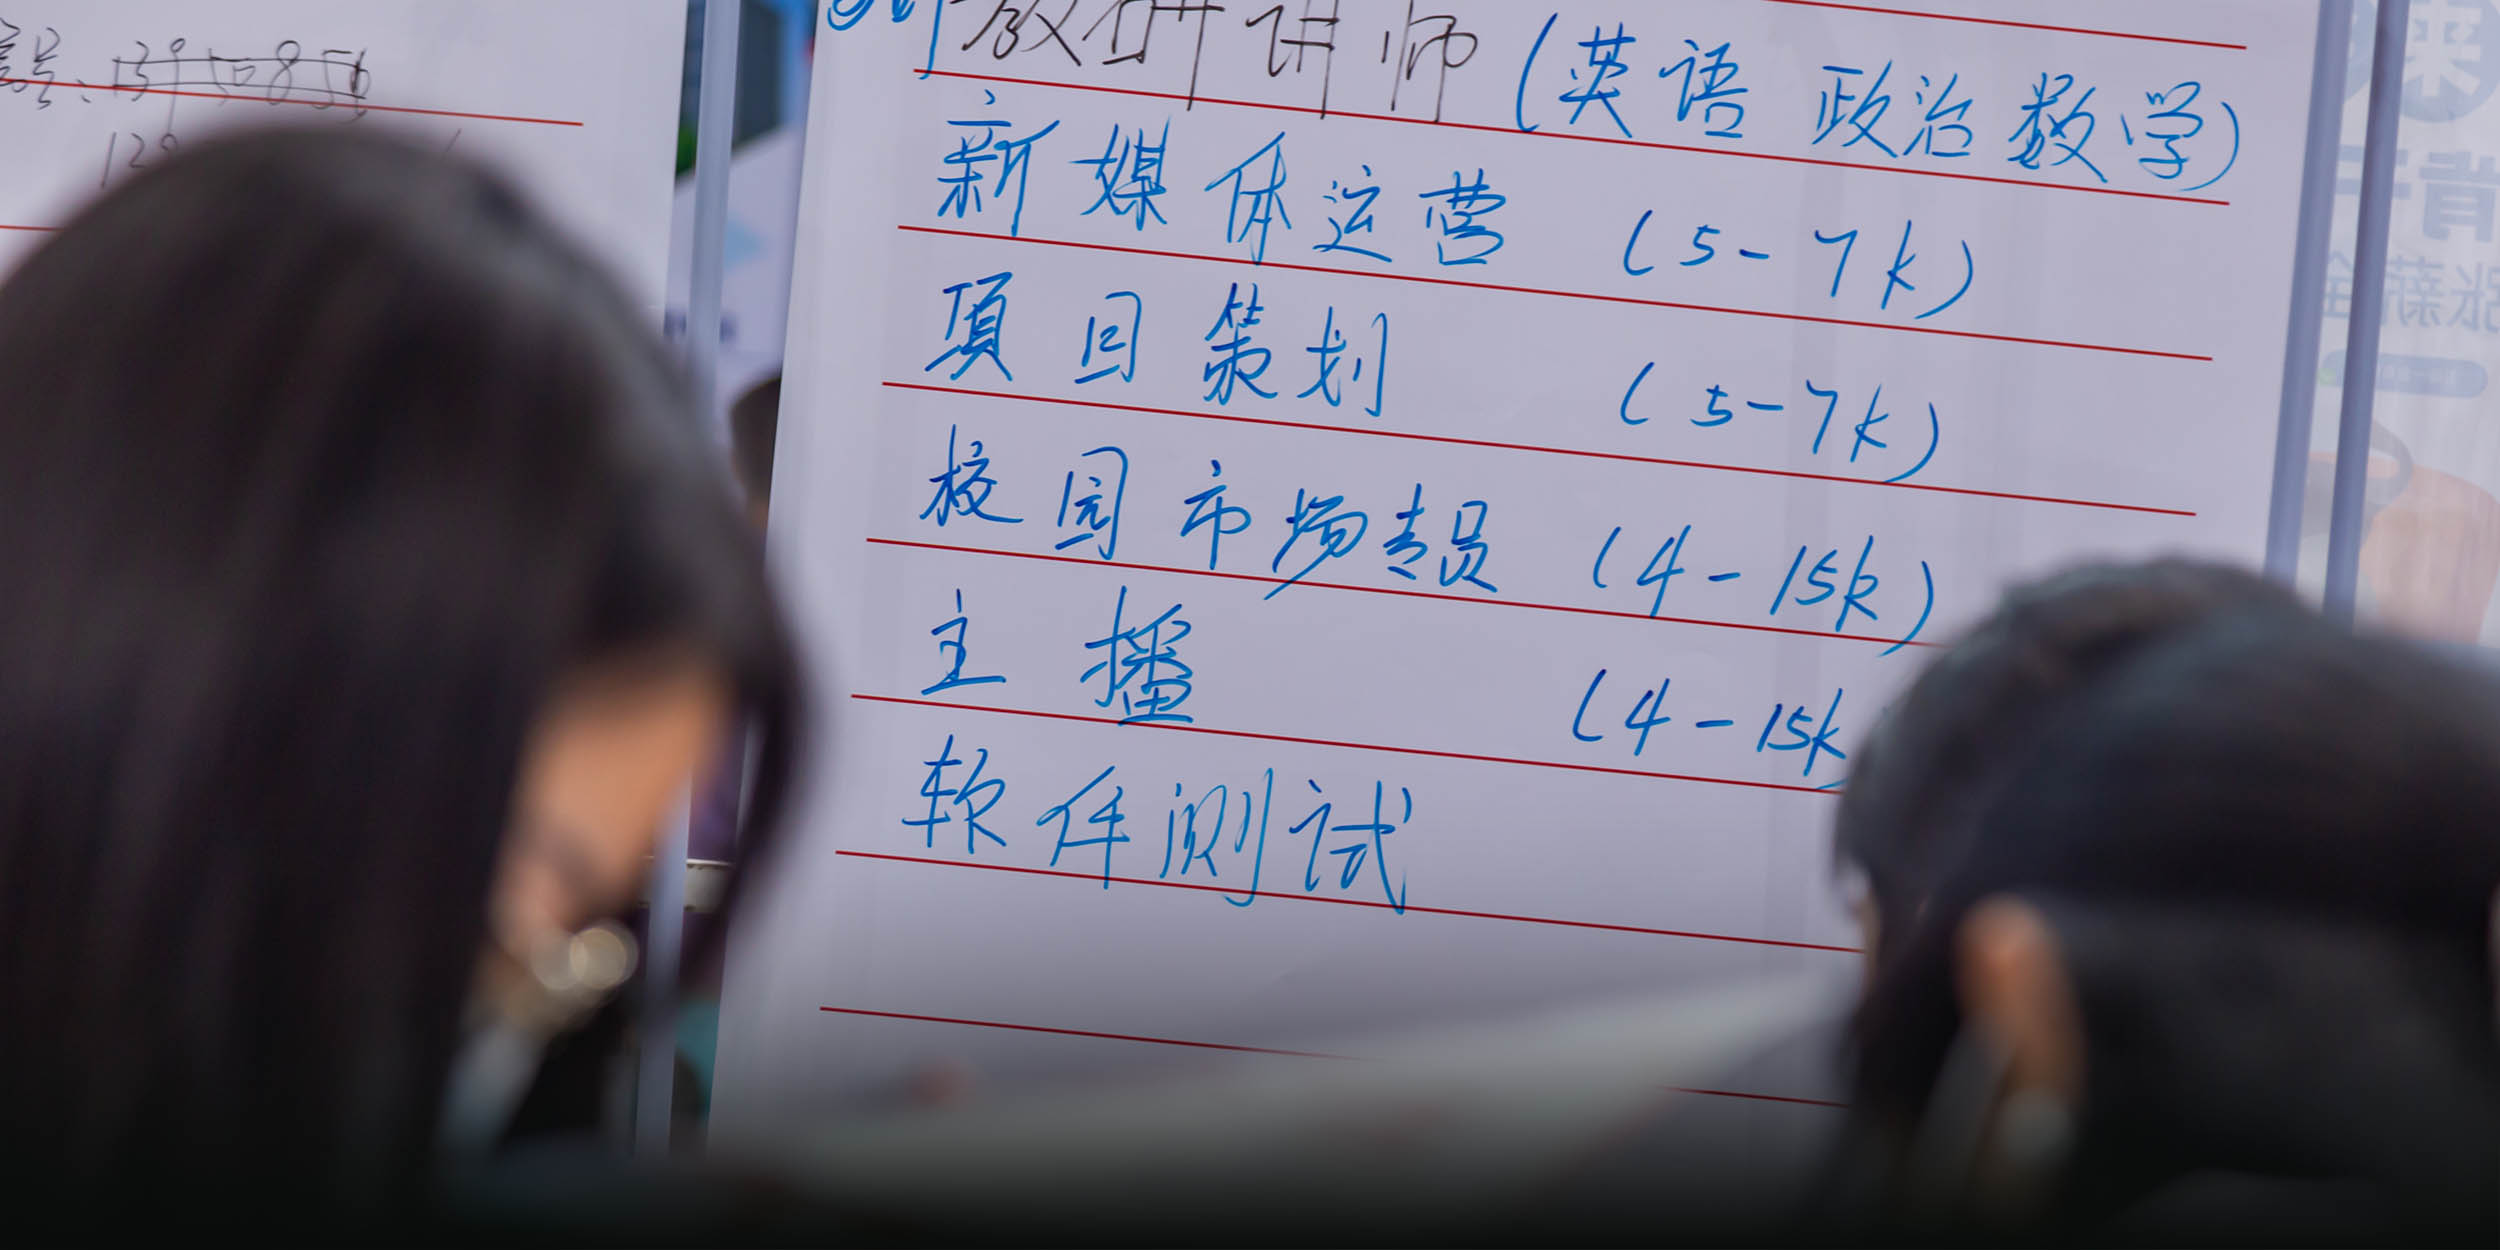 教研讲师(英语 政治 数学)
新媒体运营 (5-7k)
項目策划 (5-7k)
校园市场专员 (4-15k)
主播 (4-15k
软件测试